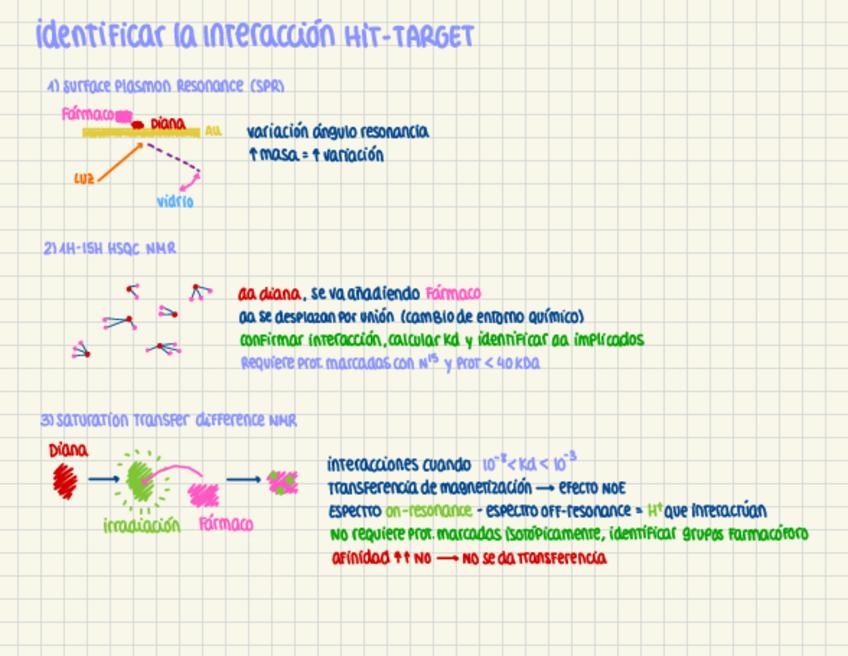 identificar la interacción HIT-TARGET
1) Surface Plasmon Resonance (SPR)
Fármaco
Diana
Au
Luz
vidrio
variación ángulo resonancia
↑ masa = ↑ variación
2) 1H-15H HSQC NMR
aa diana, se va añadiendo Fármaco
aa se desplazan por unión (cambio de entorno químico)
confirmar interacción, calcular Kd y identificar aa implicados
Requiere prot. marcadas con N¹⁵ y prot < 40 KDa
3) Saturation Transfer difference NMR
Diana
irradiación
Fármaco
interacciones cuando 10⁻⁸ < Kd < 10⁻³
Transferencia de magnetización → efecto NOE
Espectro on-resonance - espectro off-resonance = H⁺ que interactúan
No requiere prot. marcadas isotópicamente, identificar grupos farmacóforo
afinidad ↑↑ NO → No se da transferencia